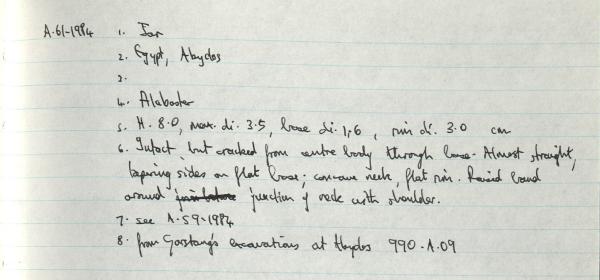 A.61-1984 1. Jar
2. Egypt, Abydos
3.
4. Alabaster
5. H. 8.0, max. di. 3.5, base di. 1.6, rim di. 3.0 cm
6. Intact but cracked from centre body through base. Almost straight,
tapering sides on flat base; concave neck, flat rim. Raised band
around junction of neck with shoulder.
7. see A.59-1984
8. from Garstang's excavations at Abydos 990.A.09